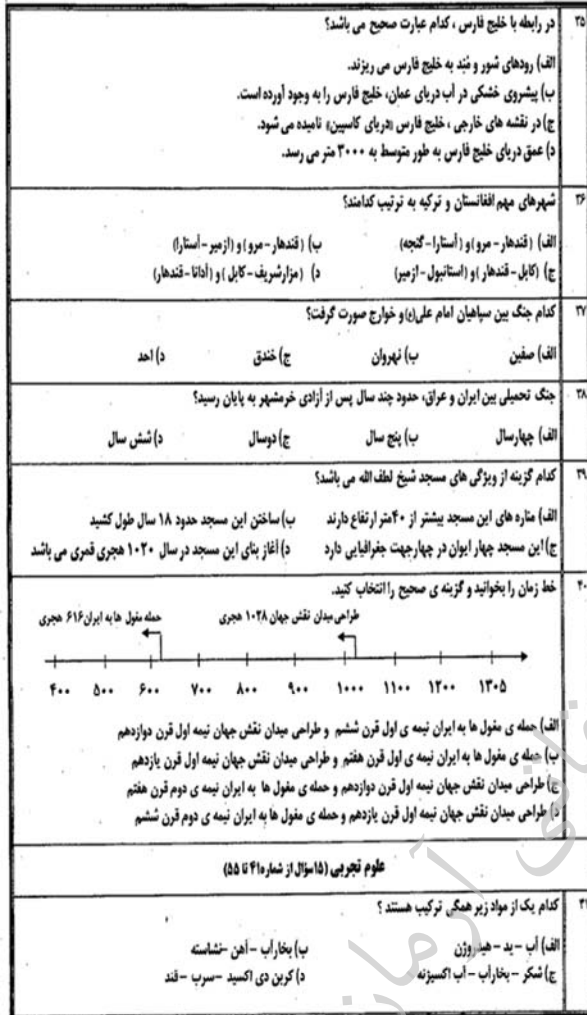 ۲۵ در رابطه با خلیج فارس ، کدام عبارت صحیح می باشد؟
الف) رودهای شور و مُند به خلیج فارس می ریزند.
ب) پیشروی خشکی در آب دریای عمان، خلیج فارس را به وجود آورده است.
ج) در نقشه های خارجی ، خلیج فارس «دریای کاسپین» نامیده می شود.
د) عمق دریای خلیج فارس به طور متوسط به ۳۰۰۰ متر می رسد.
۳۶ شهرهای مهم افغانستان و ترکیه به ترتیب کدامند؟
الف) (قندهار - مرو) و (آستارا - گنجه) ب) (قندهار - مرو) و (ازمیر - آستارا)
ج) (کابل - قندهار) و (استانبول - ازمیر) د) (مزارشریف - کابل) و (آدانا - قندهار)
۳۷ کدام جنگ بین سپاهیان امام علی(ع) و خوارج صورت گرفت؟
الف) صفین ب) نهروان ج) خندق د) احد
۳۸ جنگ تحمیلی بین ایران و عراق، حدود چند سال پس از آزادی خرمشهر به پایان رسید؟
الف) چهارسال ب) پنج سال ج) دوسال د) شش سال
۳۹ کدام گزینه از ویژگی های مسجد شیخ لطف الله می باشد؟
الف) مناره های این مسجد بیشتر از ۴۰ متر ارتفاع دارند ب) ساختن این مسجد حدود ۱۸ سال طول کشید
ج) این مسجد چهار ایوان در چهارجهت جغرافیایی دارد د) آغاز بنای این مسجد در سال ۱۰۲۰ هجری قمری می باشد
۴۰ خط زمان را بخوانید و گزینه ی صحیح را انتخاب کنید.
حمله مغول ها به ایران ۶۱۶ هجری طراحی میدان نقش جهان ۱۰۲۸ هجری
۴۰۰ ۵۰۰ ۶۰۰ ۷۰۰ ۸۰۰ ۹۰۰ ۱۰۰۰ ۱۱۰۰ ۱۲۰۰ ۱۳۰۵
الف) حمله ی مغول ها به ایران نیمه ی اول قرن ششم و طراحی میدان نقش جهان نیمه اول قرن دوازدهم
ب) حمله ی مغول ها به ایران نیمه ی اول قرن هفتم و طراحی میدان نقش جهان نیمه اول قرن یازدهم
ج) طراحی میدان نقش جهان نیمه اول قرن دوازدهم و حمله ی مغول ها به ایران نیمه ی دوم قرن هفتم
د) طراحی میدان نقش جهان نیمه اول قرن یازدهم و حمله ی مغول ها به ایران نیمه ی دوم قرن ششم
علوم تجربی (۱۵سؤال از شماره ۴۱ تا ۵۵)
کدام یک از مواد زیر همگی ترکیب هستند ؟
الف) آب - ید - هیدروژن ب) بخارآب - آهن - نشاسته
ج) شکر - بخارآب - آب اکسیژنه د) کربن دی اکسید - سرب - قند